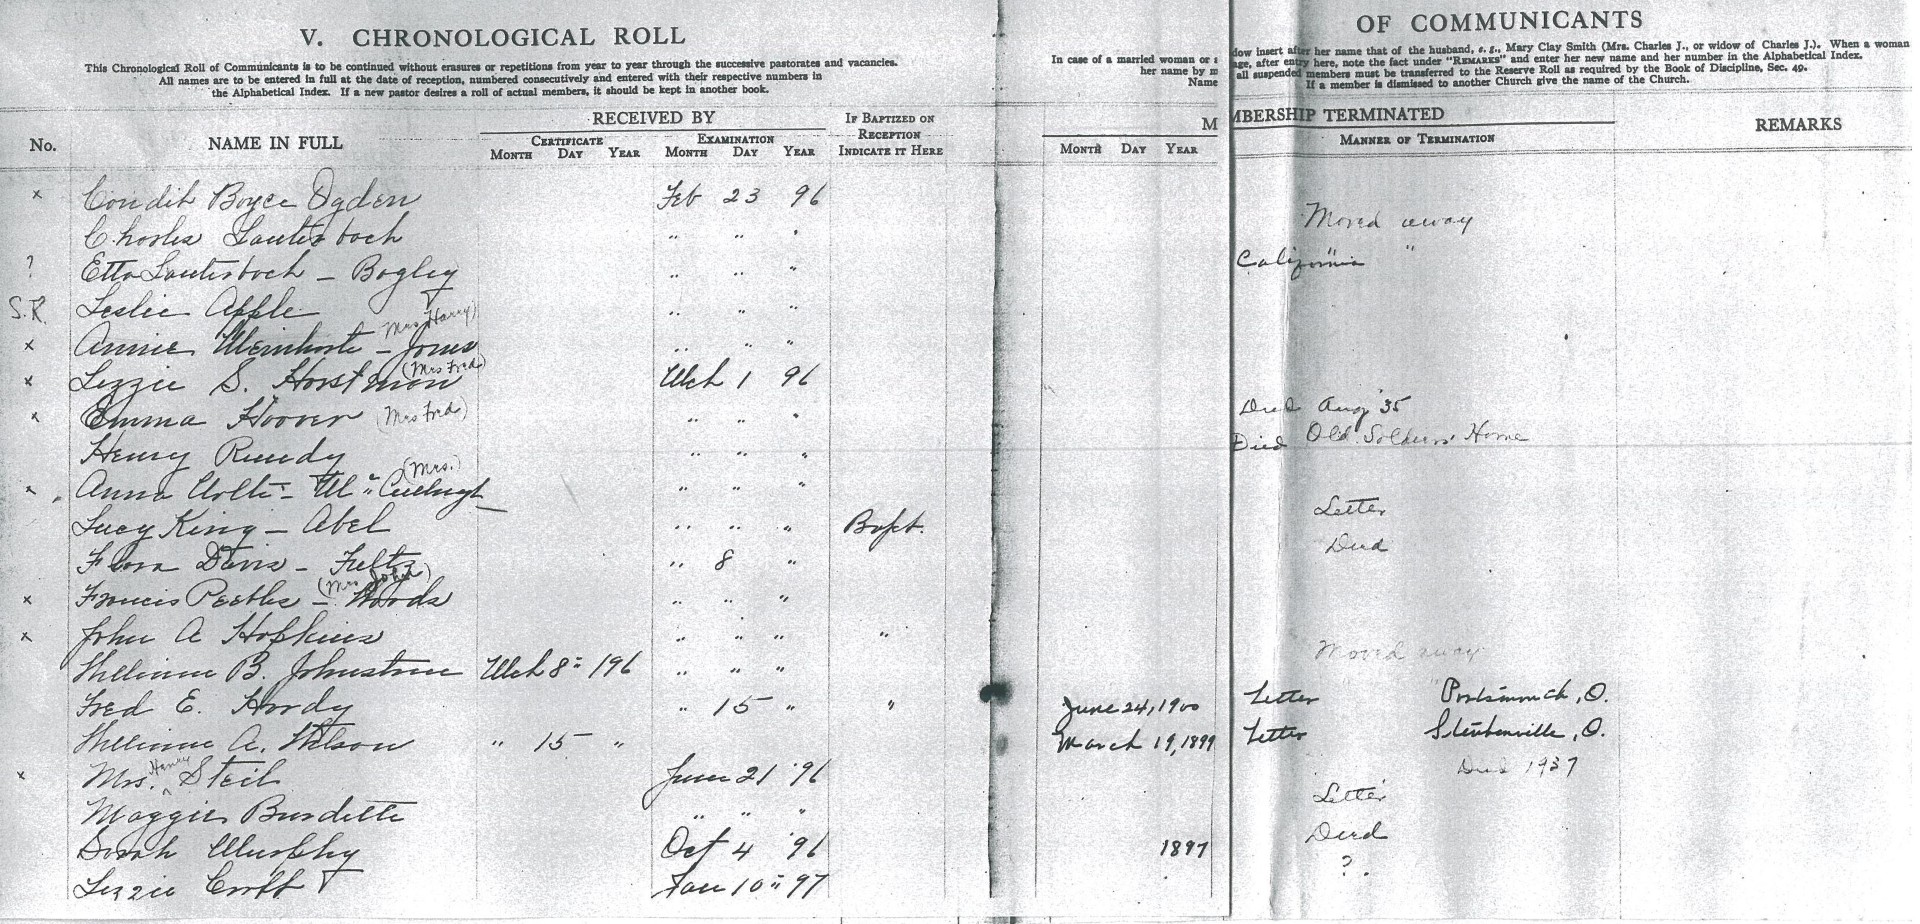 V. CHRONOLOGICAL ROLL
OF COMMUNICANTS
This Chronological Roll of Communicants is to be continued without erasures or repetitions from year to year through the successive pastorates and vacancies.
All names are to be entered in full at the date of reception, numbered consecutively and entered with their respective numbers in
the Alphabetical Index. If a new pastor desires a roll of actual members, it should be kept in another book.
In case of a married woman or
her name by m
Name
dow insert after her name that of the husband, e. g., Mary Clay Smith (Mrs. Charles J., or widow of Charles J.). When a woman
age, after entry here, note the fact under "REMARKS" and enter her new name and her number in the Alphabetical Index.
all suspended members must be transferred to the Reserve Roll as required by the Book of Discipline, Sec. 49.
If a member is dismissed to another Church give the name of the Church.
No. NAME IN FULL RECEIVED BY IF BAPTIZED ON RECEPTION INDICATE IT HERE M MBERSHIP TERMINATED REMARKS
CERTIFICATE EXAMINATION MANNER OF TERMINATION
MONTH DAY YEAR MONTH DAY YEAR MONTH DAY YEAR
x Condit Boyce Ogden Feb 23 96
Moved away
Charles Lauterbach " " "
" "
? Etta Lauterbach - Bagley " " " California
S.R. Leslie Apple " " "
x Annie - Jones (Mrs Harry) " " "
x Lizzie S. Horstman (Mrs Fred) Mch 1 96
x Emma Hoover (Mrs Fred) " " " Died Aug '35
Died Old Soldiers Home
Henry Rundy " " "
x Anna - Mc (Mrs.) " " "
Letter
Lucy King - Abel " " " Bapt.
Died
Flora Davis - Fultz " 8 "
x Francis Peebles - Woods (Mrs John) " " "
x John A Hopkins " " " "
Moved away
William B. Johnstone Mch 8 = 196 " " "
Fred E. Hardy " 15 " " June 24, 1900 Letter Portsmouth, O.
William A. Wilson " 15 " March 19, 1899 Letter Steubenville, O.
x Mrs. Henry Steil June 21 '96 Died 1937
Letter
Maggie Burdette " " "
Died
Sarah Murphy Oct 4 '96 1897
? .
Lizzie Croft Jan 10 = 97